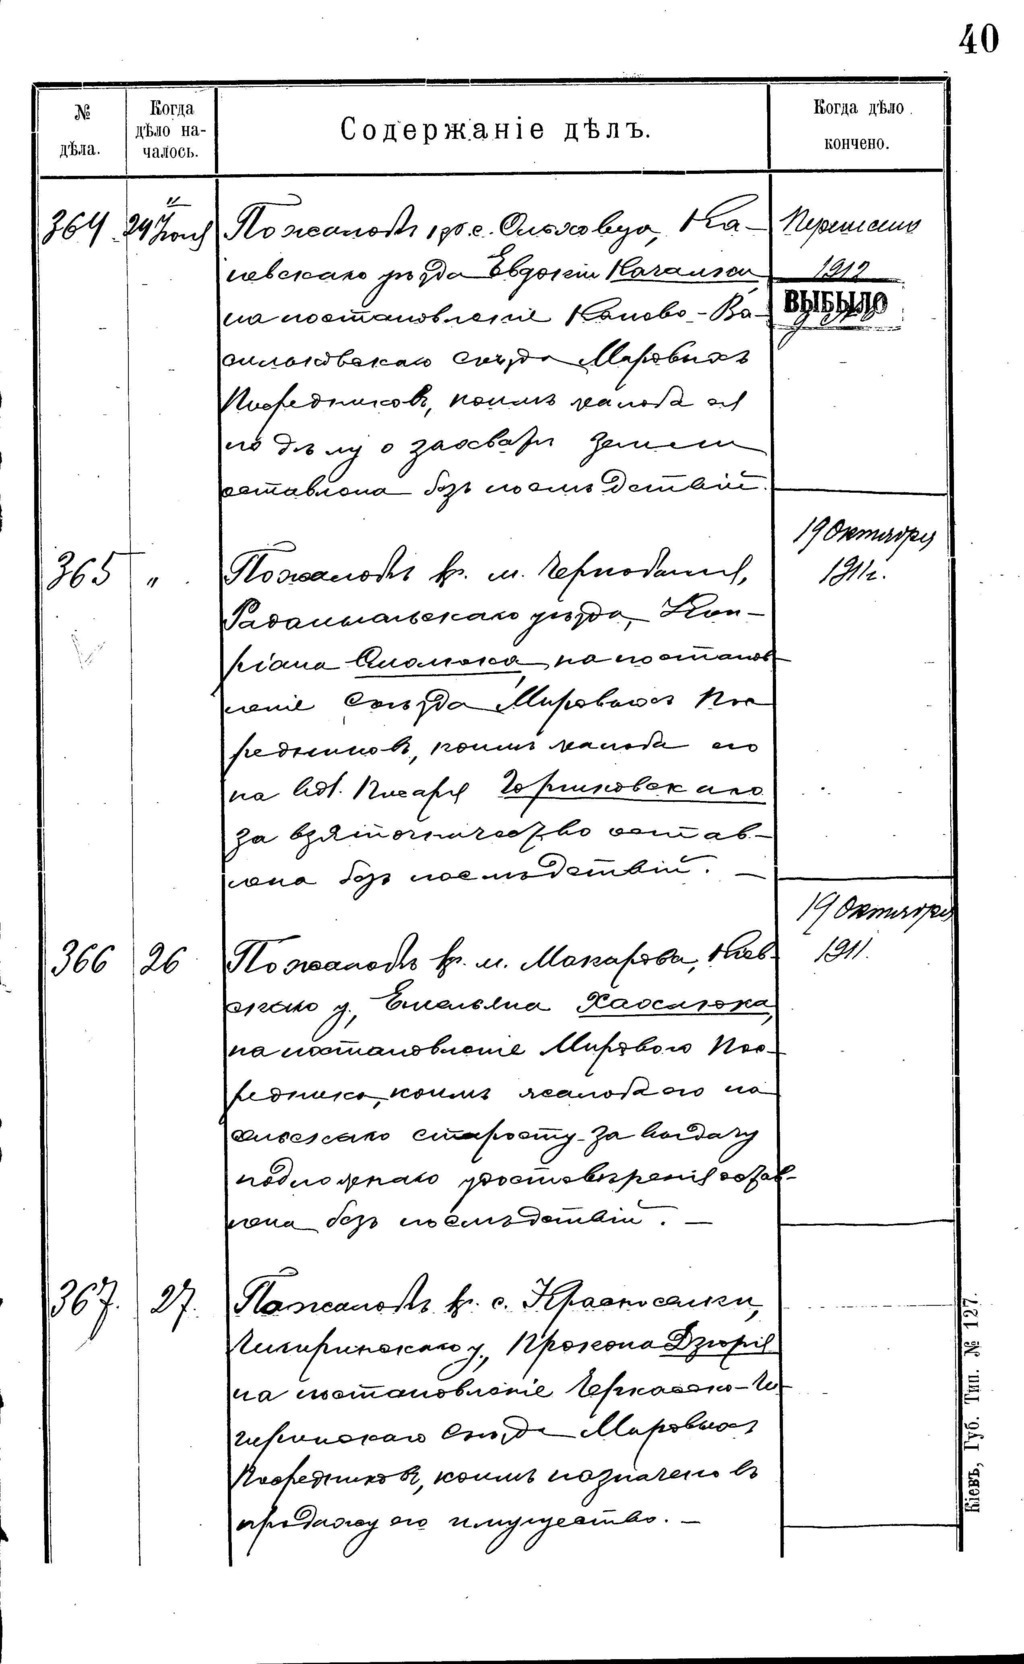 40
№ дѣла.
Когда дѣло началось.
Содержаніе дѣлъ.
Когда дѣло кончено.
364
24 Іюня
По жалобѣ кр. с. Ольховца, Ка-
невскаго уѣзда Евдокіи
на постановленіе Канево-Ва-
сильковскаго Съѣзда Мировыхъ
Посредниковъ, коимъ жалоба ея
по дѣлу о захватѣ земли
оставлена безъ послѣдствій.
1912
ВЫБЫЛО
365
"
По жалобѣ кр. м. Чернобыля,
Радомысльскаго уѣзда, Кип-
ріана на постанов-
леніе Съѣзда Мировыхъ Пос-
редниковъ, коимъ жалоба его
на вол. писаря Горшковскаго
за взяточничество остав-
лена безъ послѣдствій. —
19 Октября
1911 г.
366
26
По жалобѣ кр. м. Макарова, Кіев-
скаго у., Емельяна
на постановленіе Мирового Пос-
редника, коимъ жалоба его на
сельскаго старосту за выдачу
подложнаго удостовѣренія остав-
лена безъ послѣдствій. —
19 Октября
1911.
367.
27.
По жалобѣ кр. с. Красноселки,
Чигиринскаго у., Прокопа Дзюри
на постановленіе Черкасско-Чи-
гиринскаго Съѣзда Мировыхъ
Посредниковъ, коимъ назначено въ
продажу его имущество. —
Кіевъ, Губ. Тип. № 127.